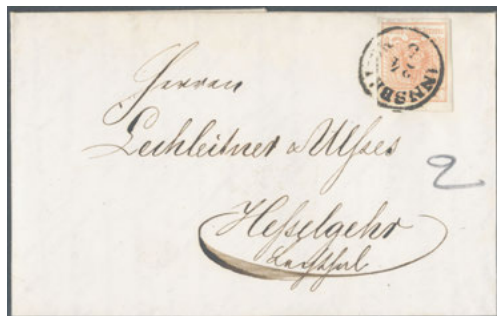 INNSBRUCK
Herren
Lechleitner & Ulses
Hesselgehr
Lechthal.
2